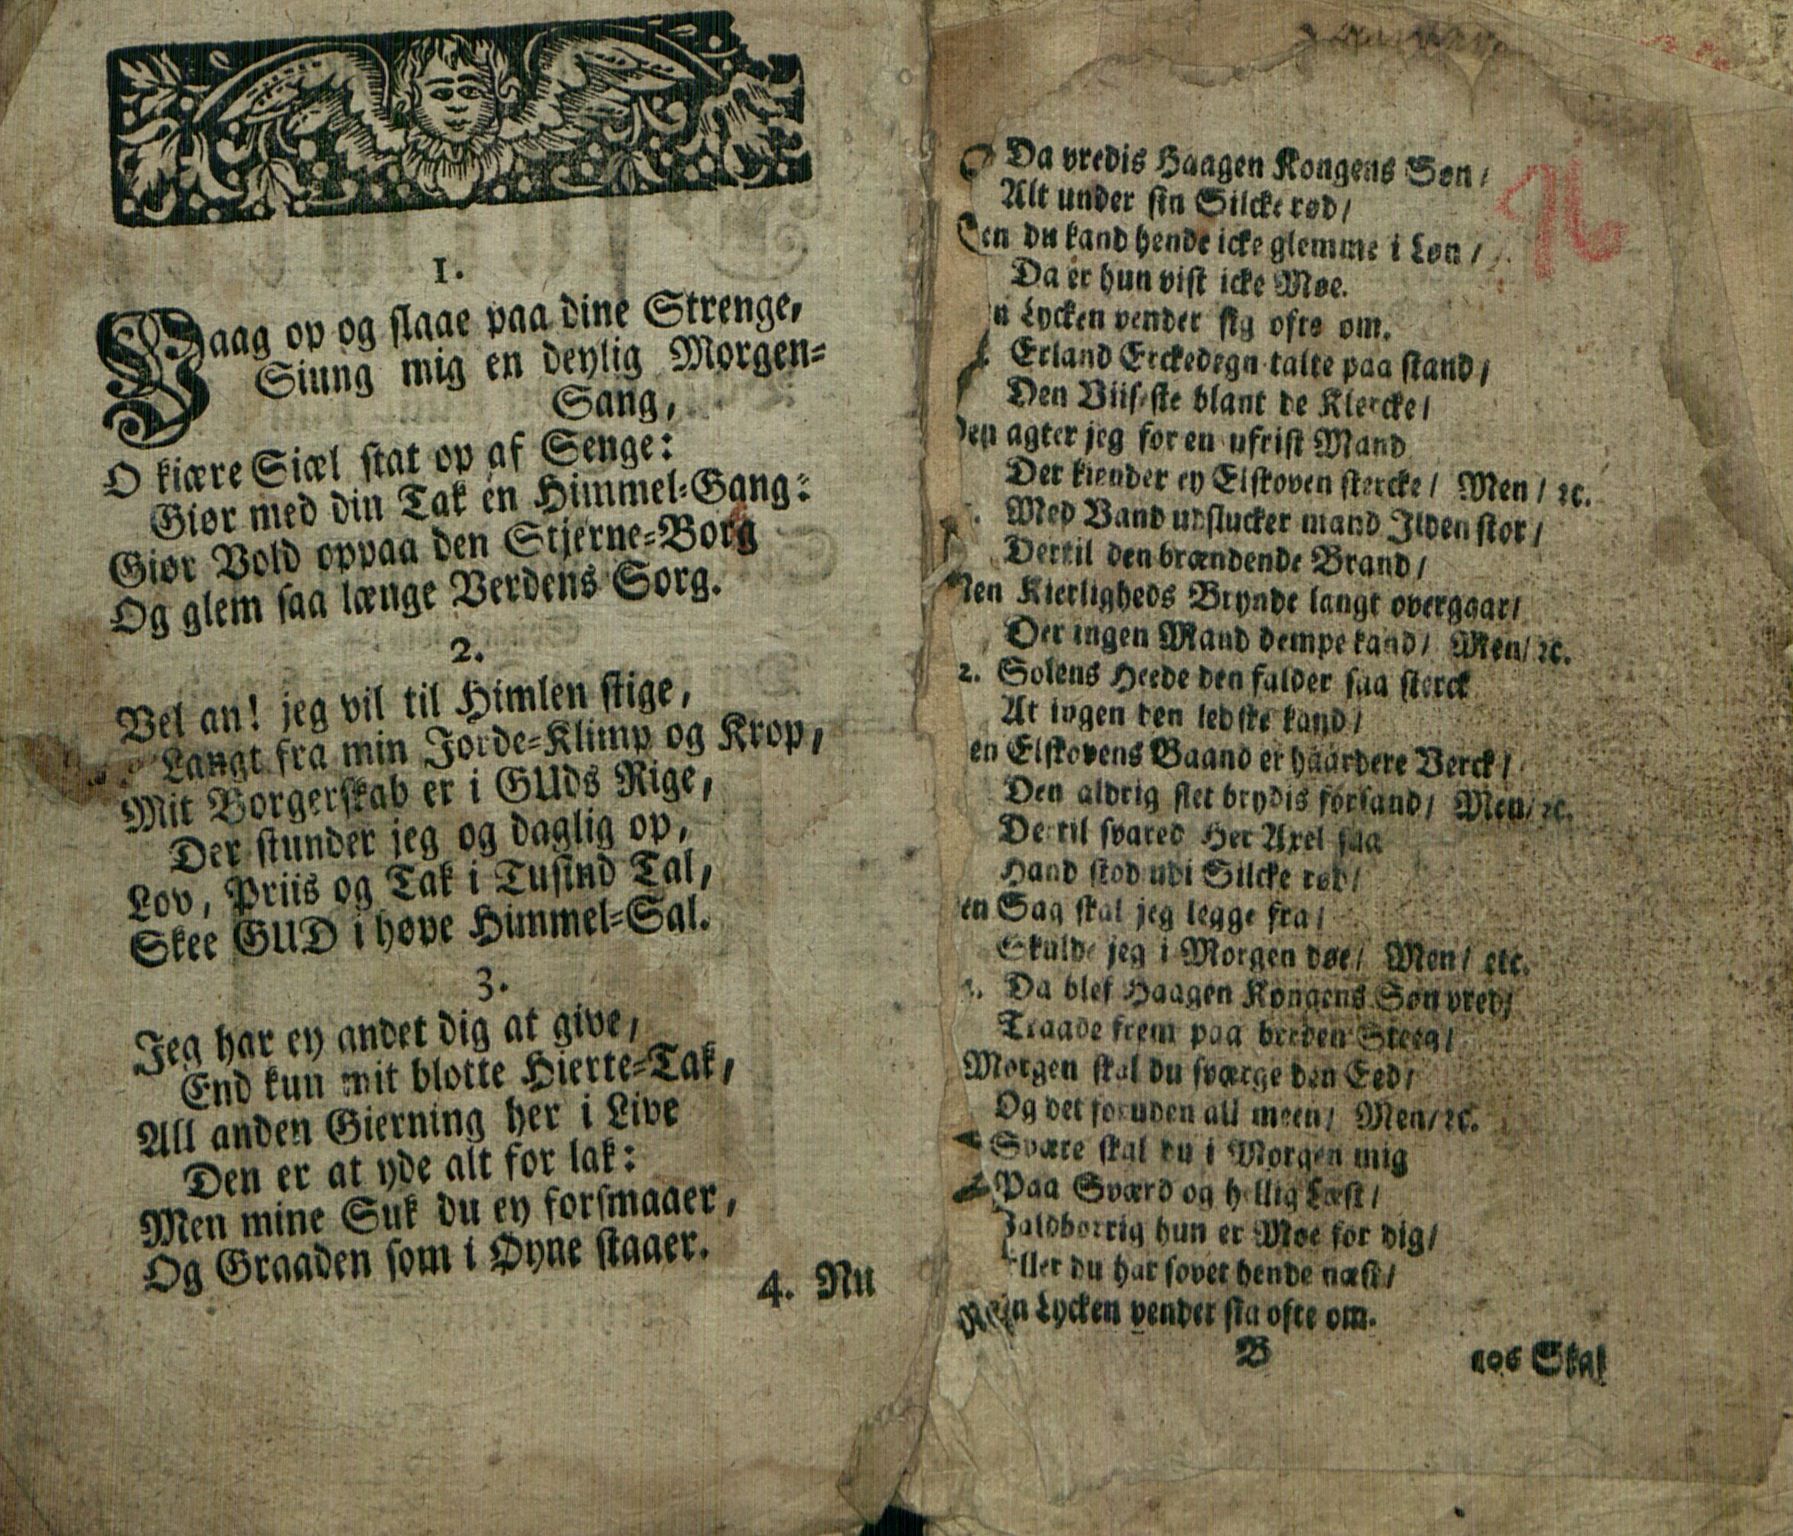 1.
Vaag op og slaae paa dine Strenge,
Siung mig en deylig Morgen-
Sang,
O kiære Siæl stat op af Senge:
Giør med din Tak en Himmel-Gang:
Giør Vold oppaa den Stjerne-Borg
Og glem saa længe Verdens Sorg.
2.
Vel an! jeg vil til Himlen stige,
Langt fra min Jorde-Klimp og Krop,
Mit Borgerskab er i GUds Rige,
Der stunder jeg og daglig op,
Lov, Priis og Tak i Tusind Tal,
Skee GUD i høye Himmel-Sal.
3.
Jeg har ey andet dig at give,
End kun mit blotte Hierte-Tak,
All anden Gierning her i Live
Den er at yde alt for lak:
Men mine Suk du ey forsmaaer,
Og Graaden som i Øyne staaer.
4. Nu
Da vredis Haagen Kongens Søn/
Alt under sin Silcke rød/
en du kand hende icke glemme i Løn/
Da er hun vist icke Møe.
n Lycken vender sig ofte om.
Erland Erckedegn talte paa stand/
Den Viiseste blant de Klercke/
en agter jeg for en ufrist Mand
Der kiender ey Elskoven stercke/ Men/ ꝛc.
Med Vand udslucker mand Ilden stor/
Dertil den brændende Brand/
Men Kierligheds Brynde langt overgaar/
Der ingen Mand dempe kand/ Men/ ꝛc.
2. Solens Heede den falder saa sterck
At ingen den ledske kand/
en Elskovens Baand er haardere Verck/
Den aldrig slet brydis forsand/ Men/ ꝛc.
Dertil svared Her Axel saa
Hand stod udi Silcke rød/
en Sag skal jeg legge fra/
Skulde jeg i Morgen døe/ Men/ etc.
Da blef Haagen Kongens Søn vred/
Traade frem paa breden Steeg/
Morgen skal du sværge den Eed/
Og det foruden all meen/ Men/ ꝛc.
Svære skal du i Morgen mig
Paa Sværd og hellig Læst/
Jaldborrig hun er Møe for dig/
Eller du har sovet hende næst/
Men Lycken vender sig ofte om.
B
106 Skal